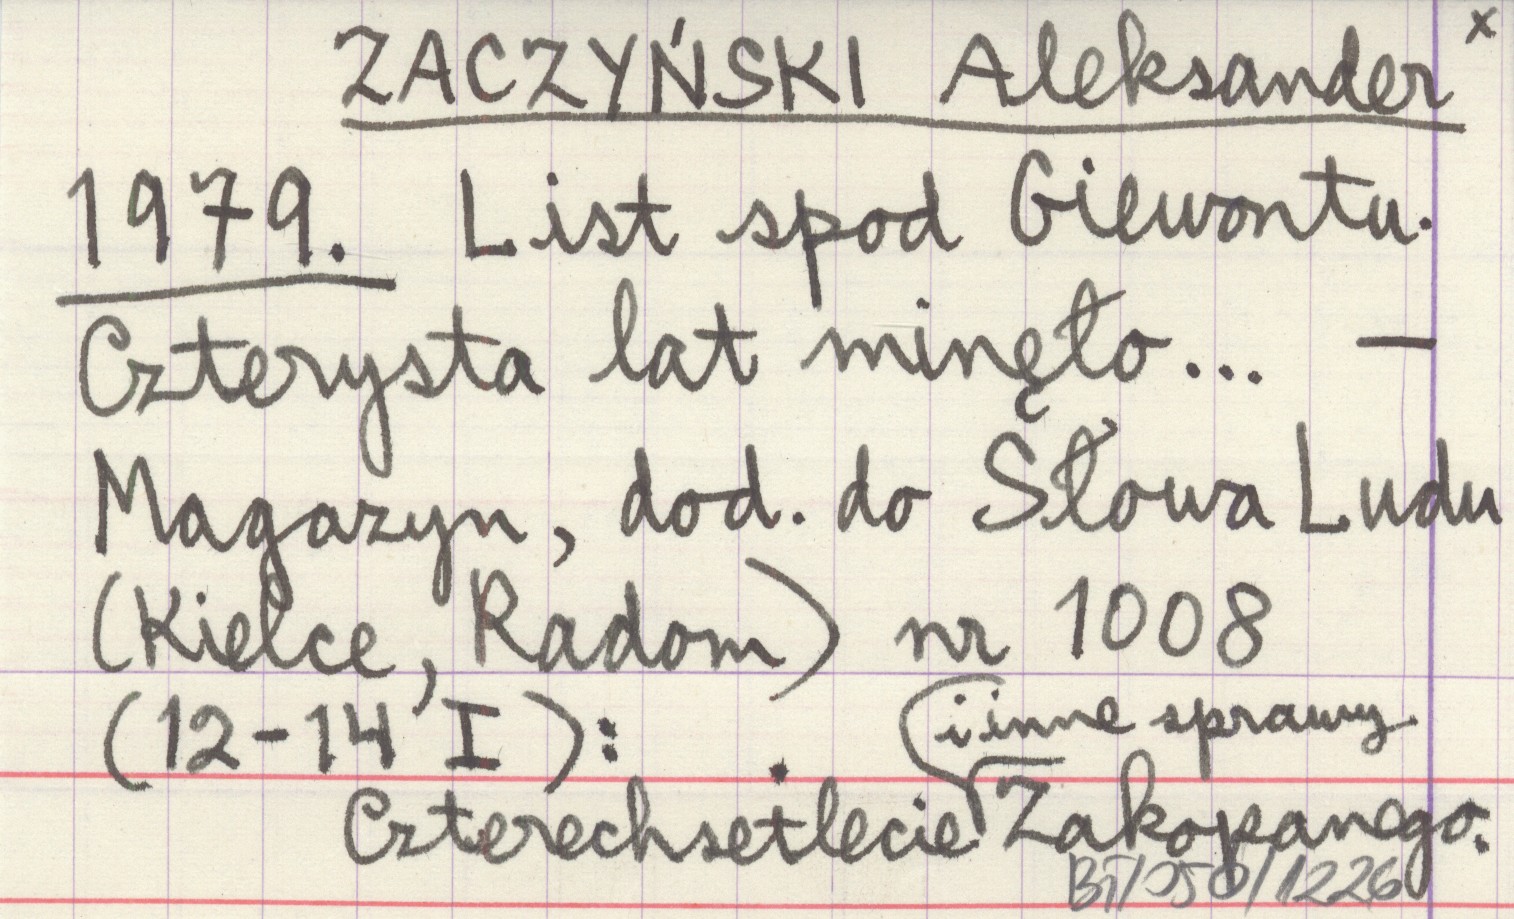 ZACZYŃSKI Aleksander x
1979. List spod Giewontu.
Czterysta lat minęło... —
Magazyn, dod. do Słowa Ludu
(Kielce, Radom) nr 1008
(12-14 I):
i inne sprawy
Czterechsetlecie Zakopanego.
BT/050/1226